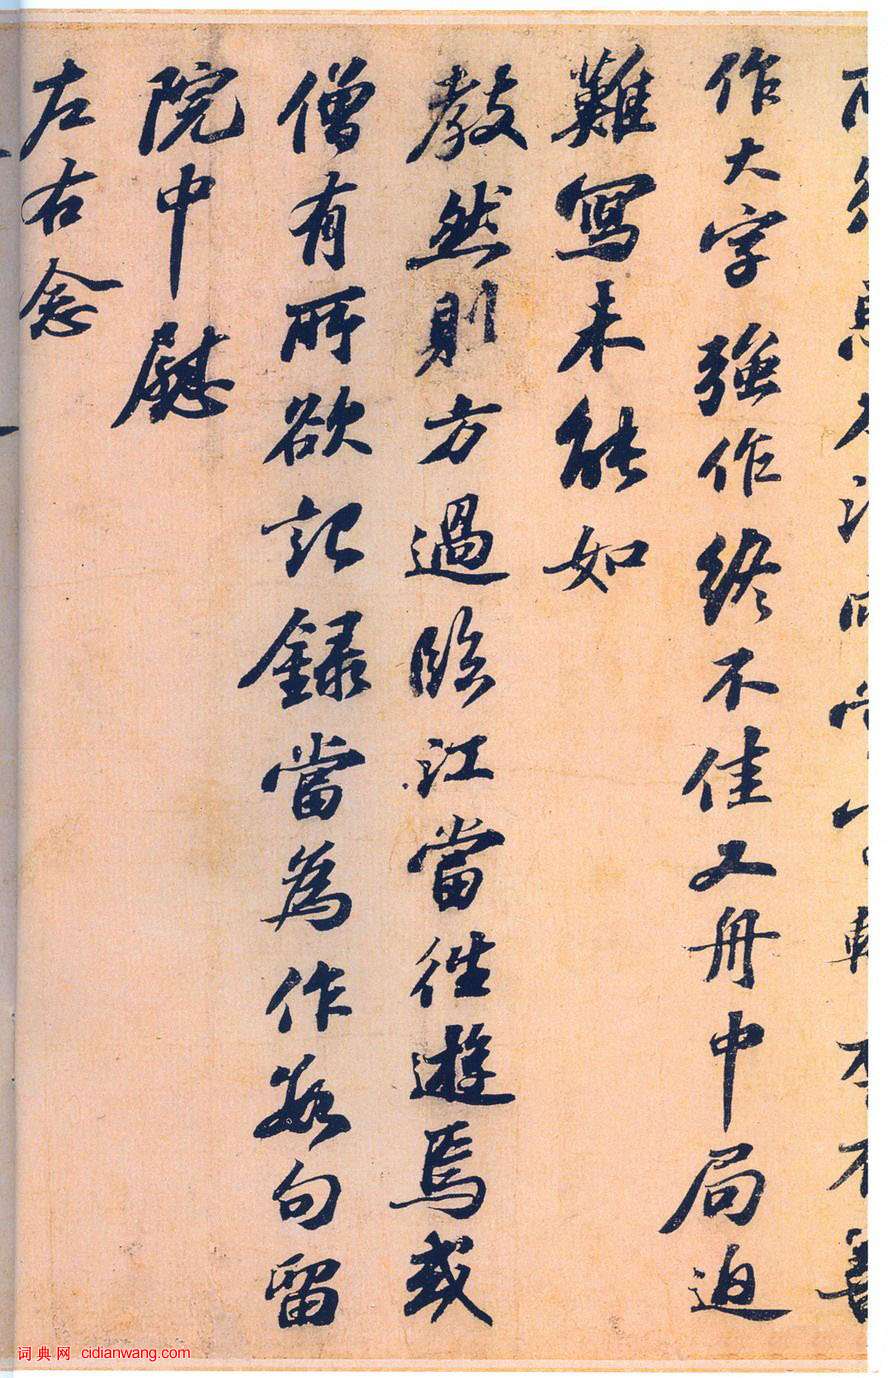 所須惠力法雨堂軾本不善
作大字強作終不佳又舟中局迫
難寫未能如
教然則方過臨江當往遊焉或
僧有所欲記錄當為作數句留
院中慰
左右念
词典网 cidianwang.com